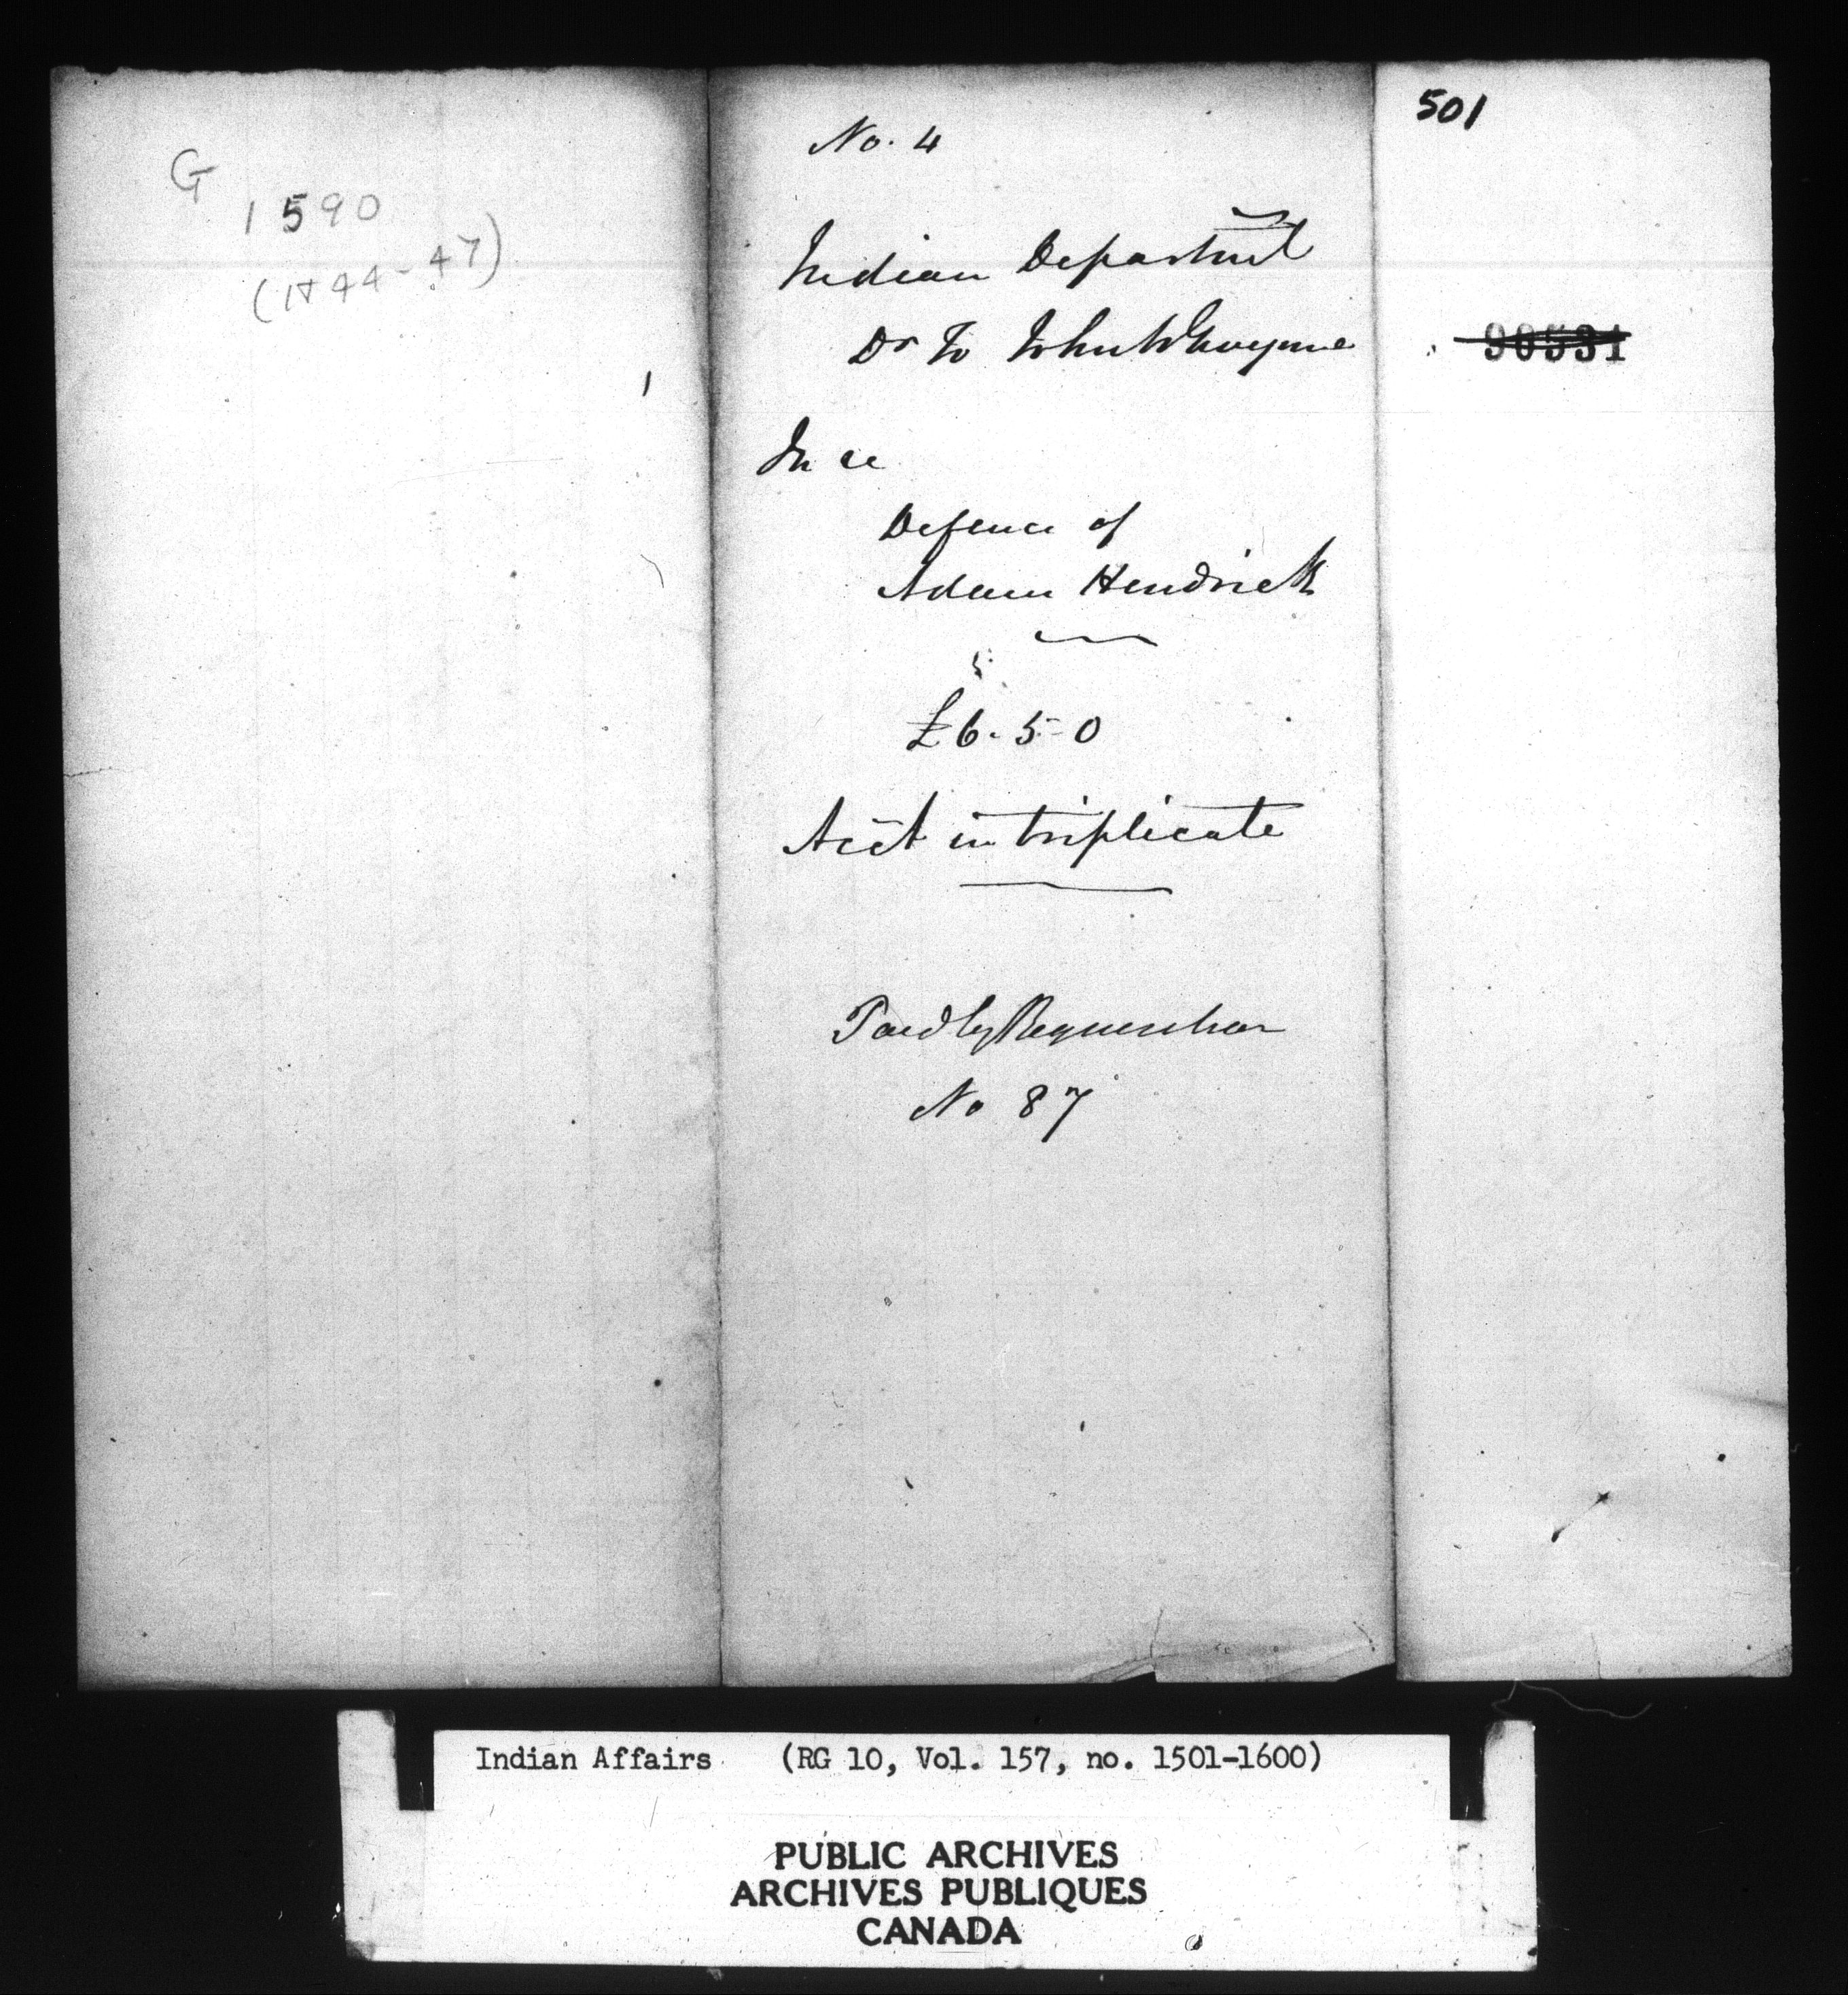 G
1590
(1844-47)
No. 4
Indian Departmt
Dr To John W Gwynne
In re
Defence of
Adam Hendrick
£6-5-0
Acct in triplicate
Paid by Requisition
No 87
501
90531
Indian Affairs (RG 10, Vol. 157, no. 1501-1600)
PUBLIC ARCHIVES
ARCHIVES PUBLIQUES
CANADA